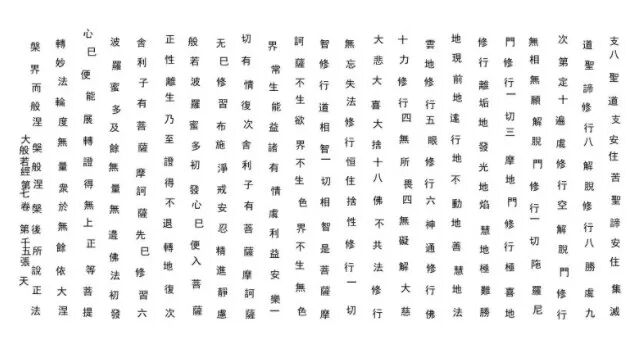 支八聖道支安住苦聖諦安住集滅
道聖諦修行八解脫修行八勝處九
次第定十遍處修行空解脫門修行
無相無願解脫門修行一切陁羅尼
門修行一切三摩地門修行極喜地
修行離垢地發光地焰慧地極難勝
地現前地遠行地不動地善慧地法
雲地修行五眼修行六神通修行佛
十力修行四無所畏四無礙解大慈
大悲大喜大捨十八佛不共法修行
無忘失法修行恒住捨性修行一切
智修行道相智一切相智是菩薩摩
訶薩不生欲界不生色界不生無色
界常生能益諸有情處利益安樂一
切有情復次舍利子有菩薩摩訶薩
无巳修習布施淨戒安忍精進靜慮
般若波羅蜜多初發心巳便入菩薩
正性離生乃至證得不退轉地復次
舍利子有菩薩摩訶薩先巳修習六
波羅蜜多及餘無量無邊佛法初發
心巳便能展轉證得無上正等菩提
轉妙法輪度無量衆於無餘依大涅
槃界而般涅槃般涅槃後所說正法
大般若經第七卷 第千五張 天